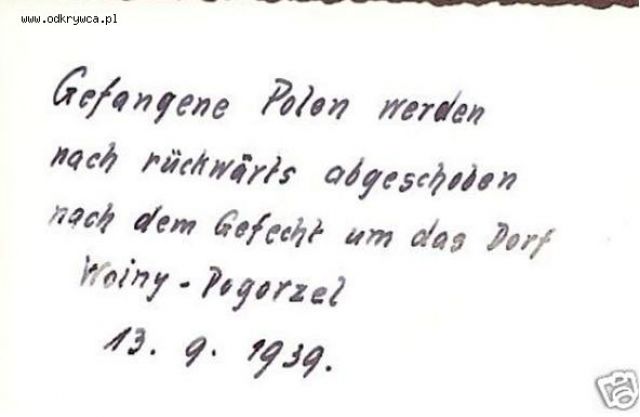 www.odkrywca.pl
Gefangene Polen werden
nach rückwärts abgeschoben
nach dem Gefecht um das Dorf
Woiny-Pogorzel
13. 9. 1939.